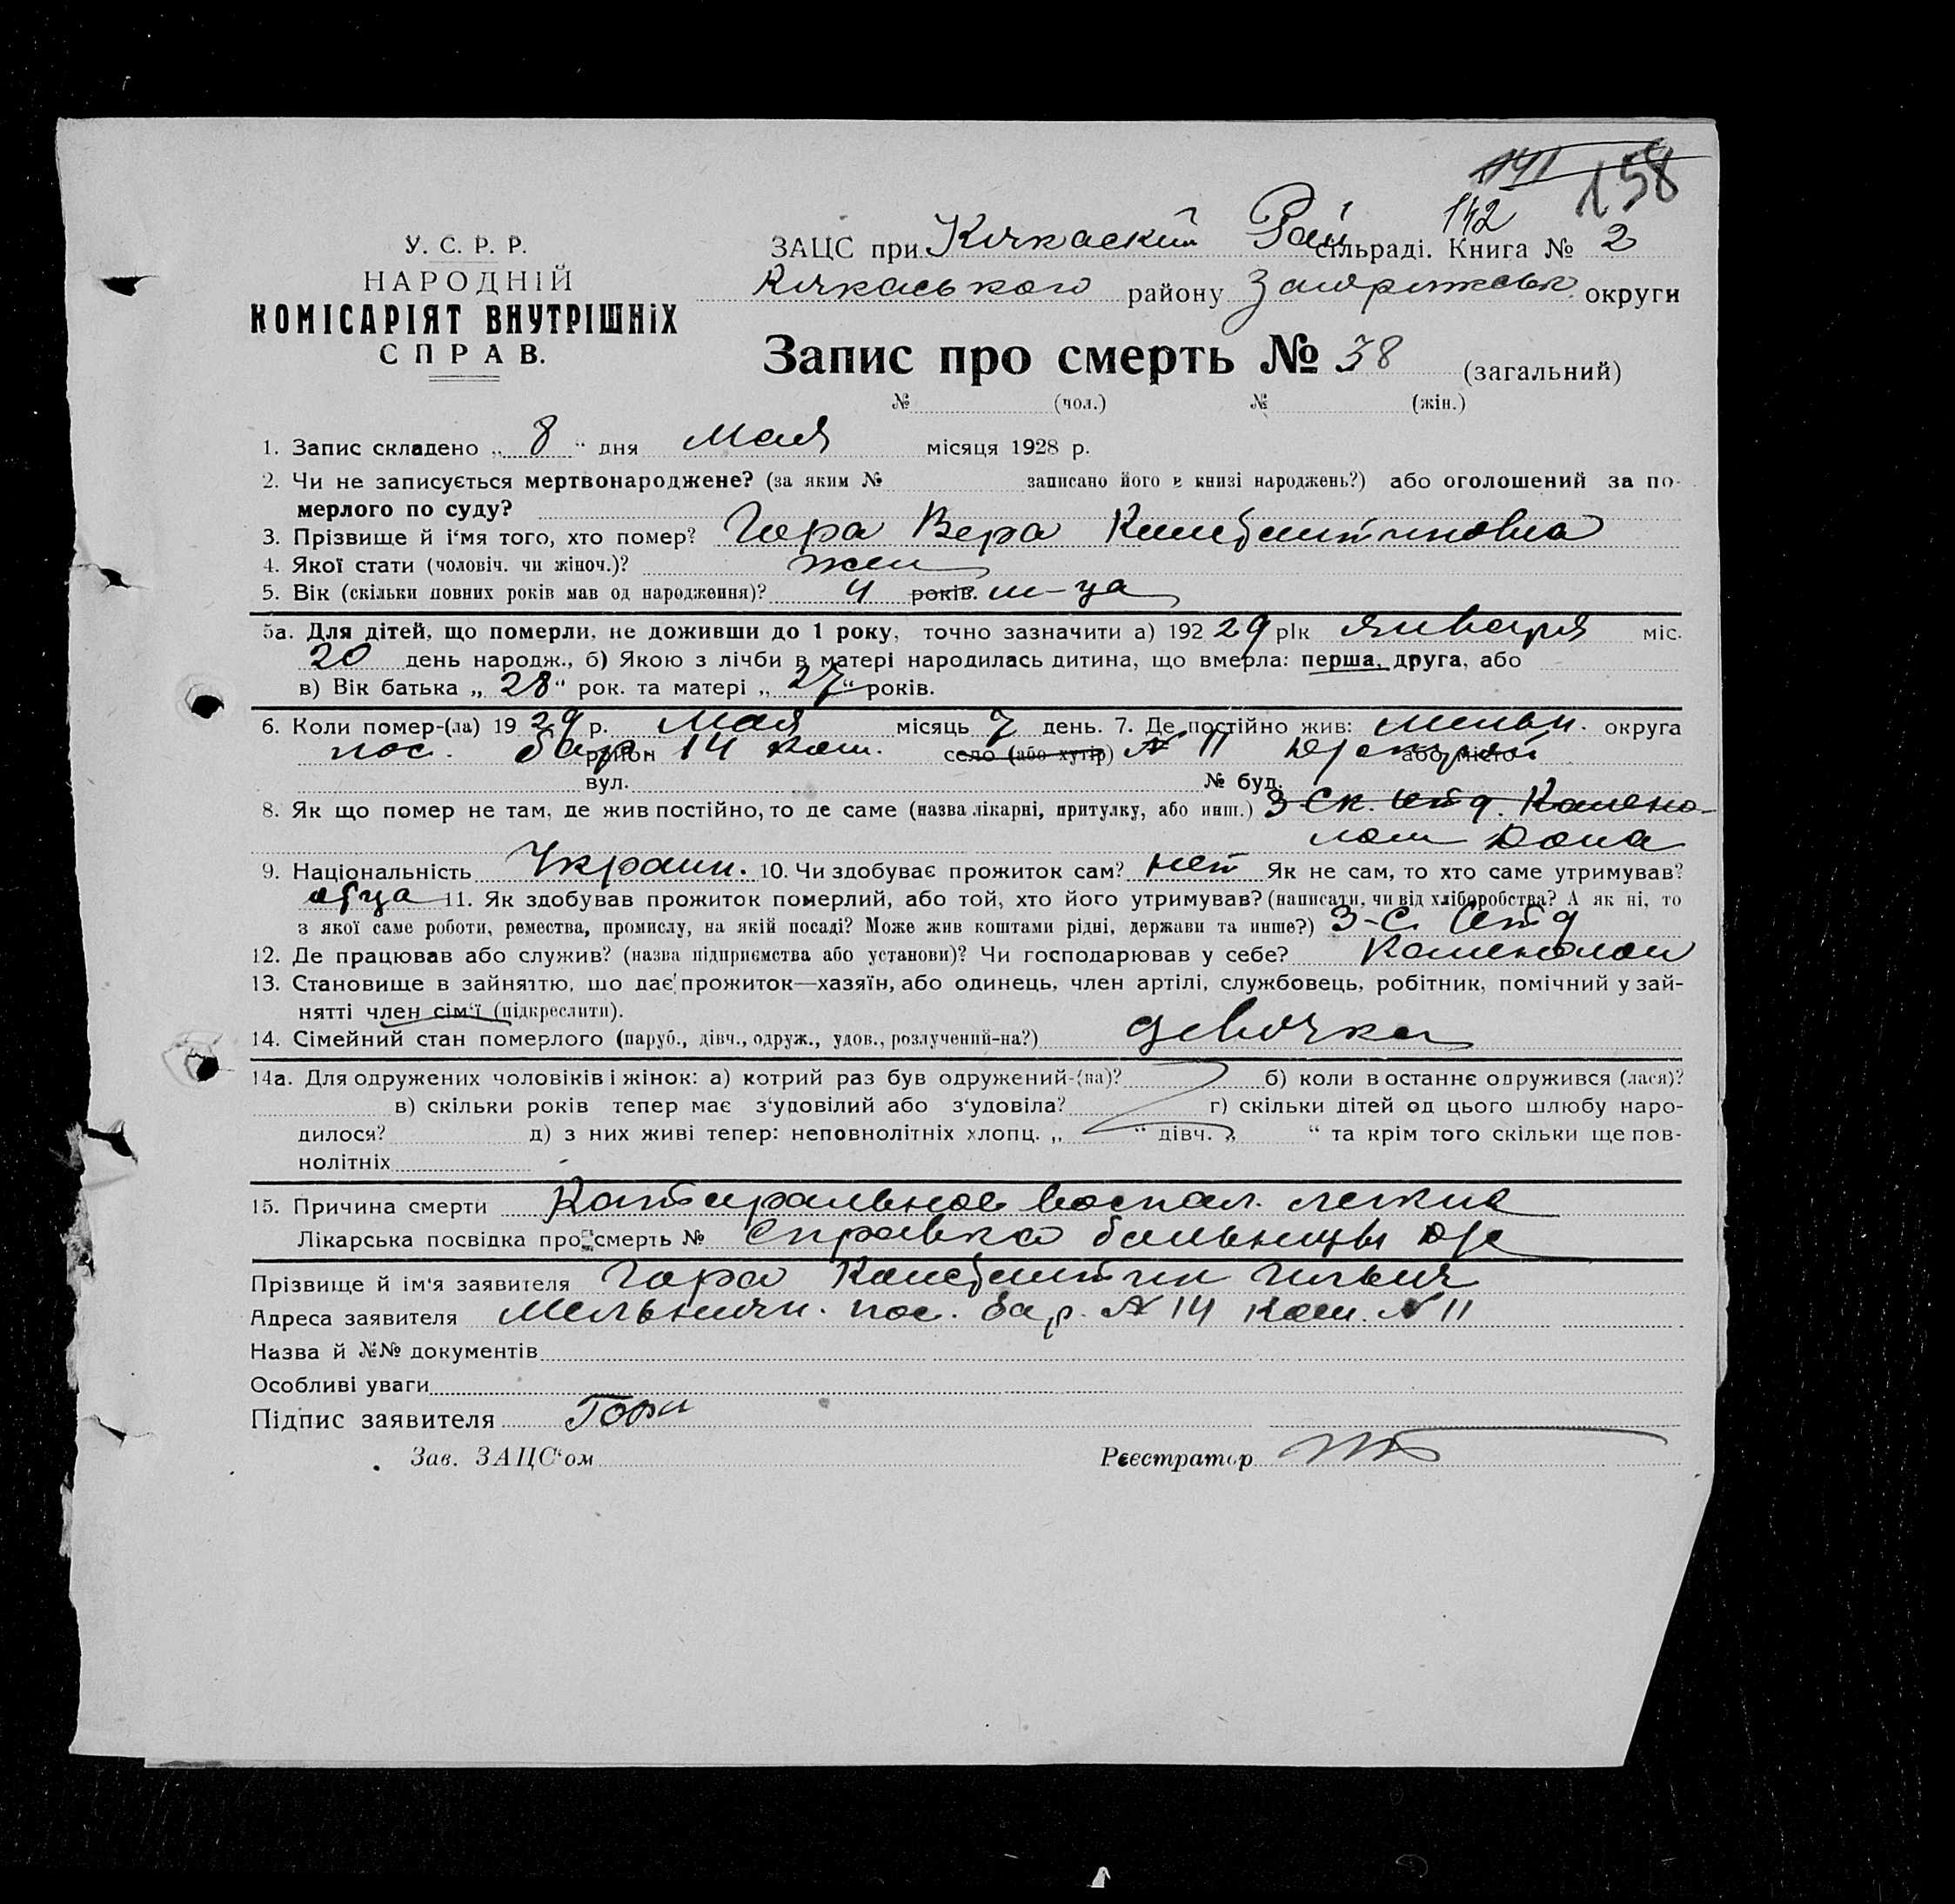 141 158
142
У. С. Р. Р.
НАРОДНІЙ
КОМІСАРІЯТ ВНУТРІШНІХ
СПРАВ.
ЗАЦС при Кичкаский Рай сільраді. Книга № 2
Кичкаського району Запорижськ округи
Запис про смерть № 38 (загальний)
№ (чол.) № (жін.)
1. Запис складено „ 8 “ дня Мая місяця 1928 р.
2. Чи не записується мертвонароджене? (за яким № записано його в книзі народжень?) або оголошений за по-
мерлого по суду?
3. Прізвище й і‘мя того, хто помер? Гора Вера Константиновна
4. Якої статі (чоловіч. чи жіноч.)? жен
5. Вік (скільки повних років мав од народження)? 4 років. м-ца
5а. Для дітей, що померли, не доживши до 1 року, точно зазначити а) 192 29 рік января міс.
20 день народж., б) Якою з лічби в матері народилась дитина, що вмерла: перша, друга, або
в) Вік батька „ 28 “ рок. та матері „ 27 “ років.
6. Коли помер-(ла) 19 29 р. Мая місяць 7 день. 7. Де постійно жив: мельн. округа
пос. бар район 14 ком. село (або хутір) № 11 або місто
вул. № буд.
8. Як що помер не там, де жив постійно, то де саме (назва лікарні, притулку, або инш.) 3 Ск. отд. Камено-
лом Дома
9. Національність Украин. 10. Чи здобуває прожиток сам? нет Як не сам, то хто саме утримував?
отца 11. Як здобував прожиток померлий, або той, хто його утримував? (написати, чи від хліборобства? А як ні, то
з якої саме роботи, ремества, промислу, на якій посаді? Може жив коштами рідні, держави та инше?) 3-С. Отд
12. Де працював або служив? (назва підприємства або установи)? Чи господарював у себе? Каменолом
13. Становище в зайняттю, що дає прожиток—хазяїн, або одинець, член артілі, службовець, робітник, помічний у зай-
нятті член сім‘ї (підкреслити).
14. Сімейний стан померлого (паруб., дівч., одруж., удов., розлучений-на?) девочка
14а. Для одружених чоловіків і жінок: а) котрий раз був одружений-(на)? б) коли востаннє одружився (лася)?
в) скільки років тепер має з‘удовілий або з‘удовіла? г) скільки дітей од цього шлюбу наро-
дилося? д) з них живі тепер: неповнолітніх хлопц. „ “ дівч. „ “ та крім того скільки ще пов-
нолітніх
15. Причина смерти Катаральное воспал. легких
Лікарська посвідка про смерть № Справка больницы
Прізвище й ім‘я заявителя Гора Константин Ильич
Адреса заявителя Мельничн. пос. бар. № 14 Ком. № 11
Назва й №№ документів
Особливі уваги
Підпис заявителя Гора
Зав. ЗАЦС‘ом Реєстратор